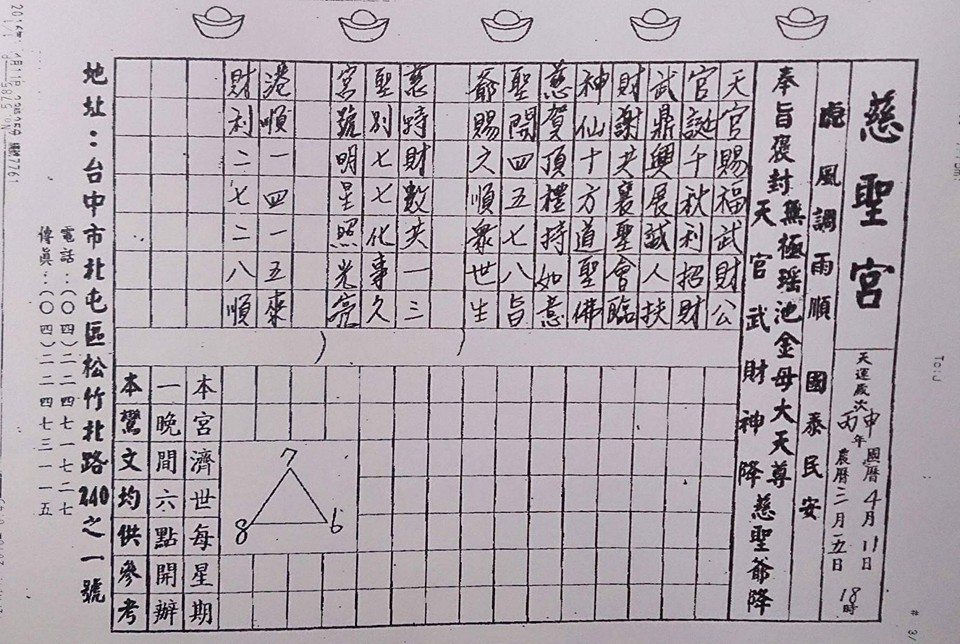 慈聖宮
天運歲次丙申年
國曆4月11日
農曆三月初五日
18時
風調雨順 國泰民安
奉旨褒封無極瑤池金母大天尊
天官武財神降
慈聖爺降
天官賜福武財公
官誕千秋利招財
武鼎興展誠人扶
財謝共襄聖會臨
神仙十方道聖佛
慈賀頂禮持如意
聖開四五七八旨
爺賜六順眾世生
慈特財數共一三
聖別七七化事久
宮號明星照光亮
港順一四一五來
財利二七二八順
7
8 6
本宮濟世每星期
一晚間六點開辦
本鸞文均供參考
地址：台中市北屯區松竹北路240之一號
電話：(〇四)二二四七一七二七
傳眞：(〇四)二二四七三一一五